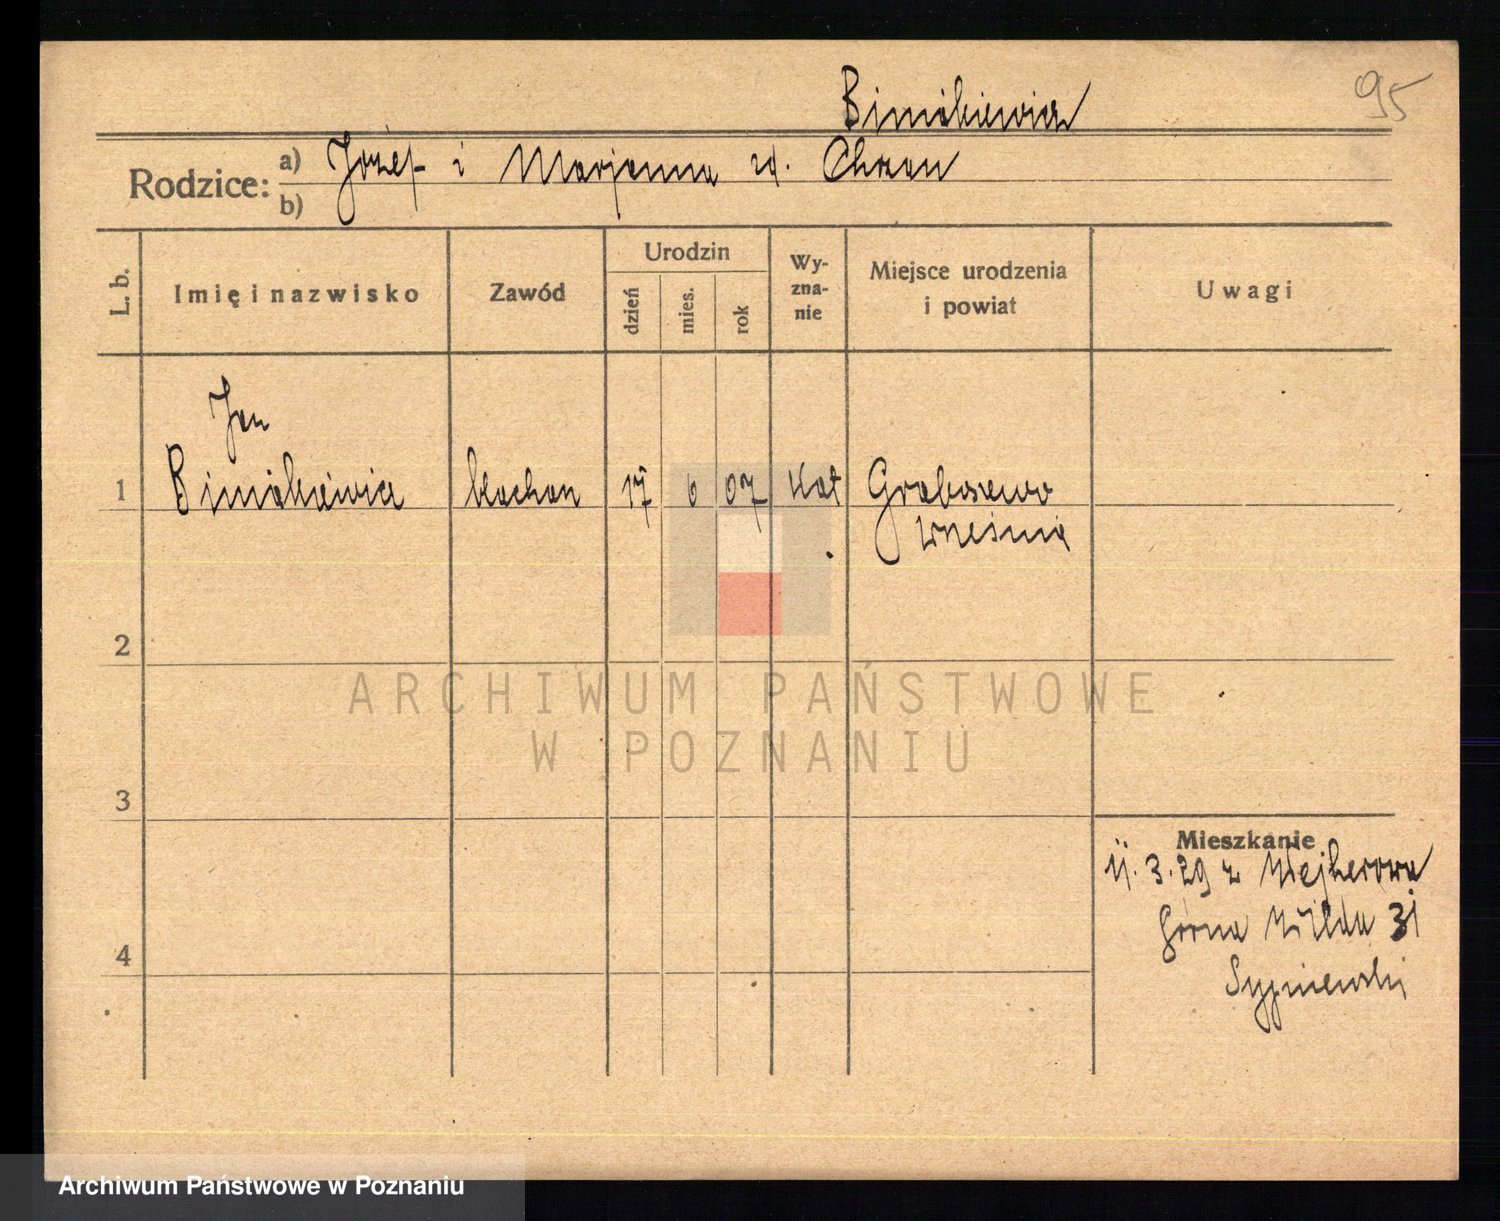 95
Bimókiewicz
Rodzice: a) Józef i Marjanna zd. Chrzan
b)
L. b.
Imię i nazwisko
Zawód
Urodzin
dzień
mies.
rok
Wy-
zna-
nie
Miejsce urodzenia
i powiat
Uwagi
Jan
1 Bimókiewicz 17 6 07 Kat Graboszewo
Września
2
3
4
Mieszkanie
11.3.29 z Wejherowa
Górna Wilda 31
Sypniewski
ARCHIWUM PAŃSTWOWE
W POZNANIU
Archiwum Państwowe w Poznaniu